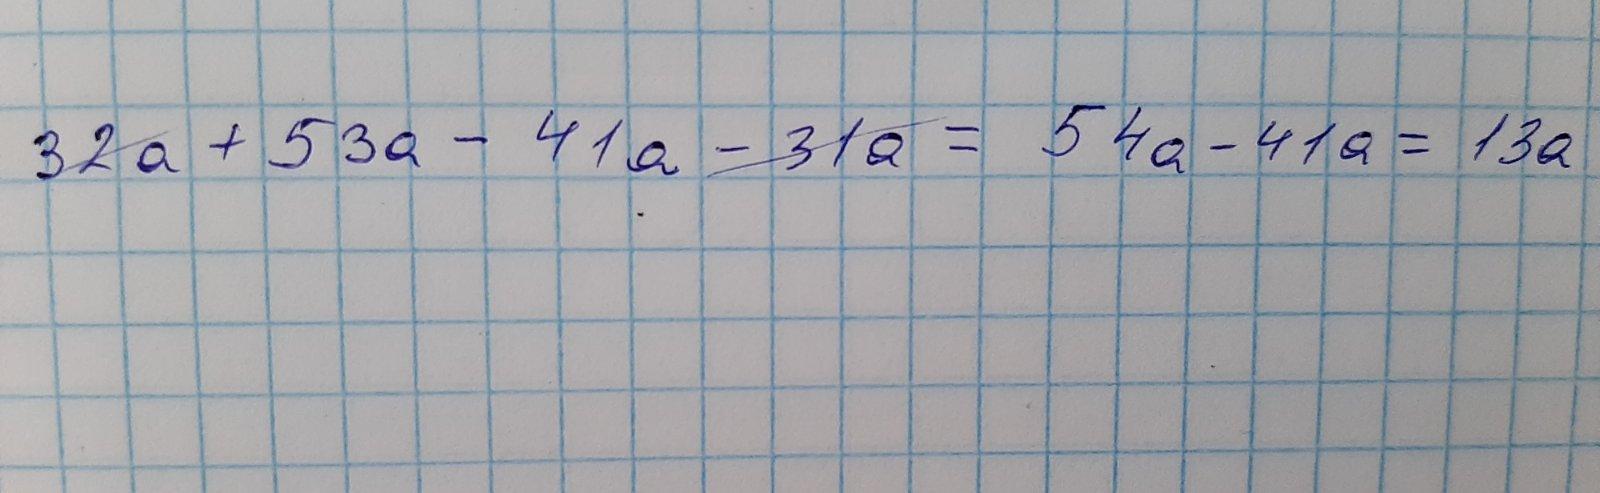 32a + 53a - 41a - 31a = 54a - 41a = 13a